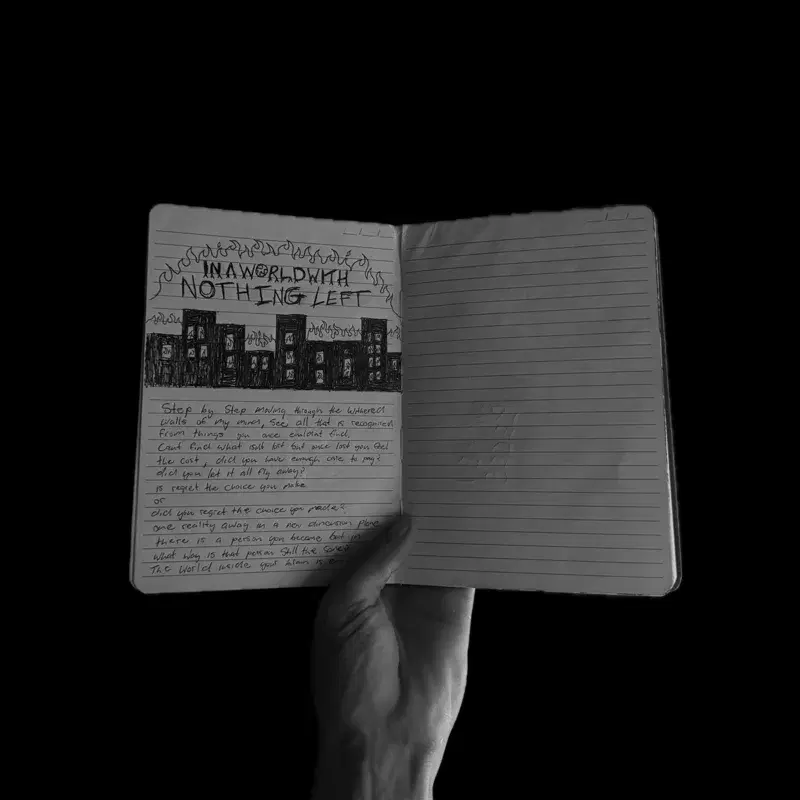 IN A WORLD WITH
NOTHING LEFT
Step by Step moving through the withered
walls of my mind, see all that is recognized
from things you once find.
Cant find what isnt lost but once lost you feel
the cost, did you have enough to pay?
did you let it all fly away?
is regret the choice you make
or
did you regret the choice you made?
one reality away on a new dimension plane
there is a person you became but in
what way is that person still the same?
The world inside your is